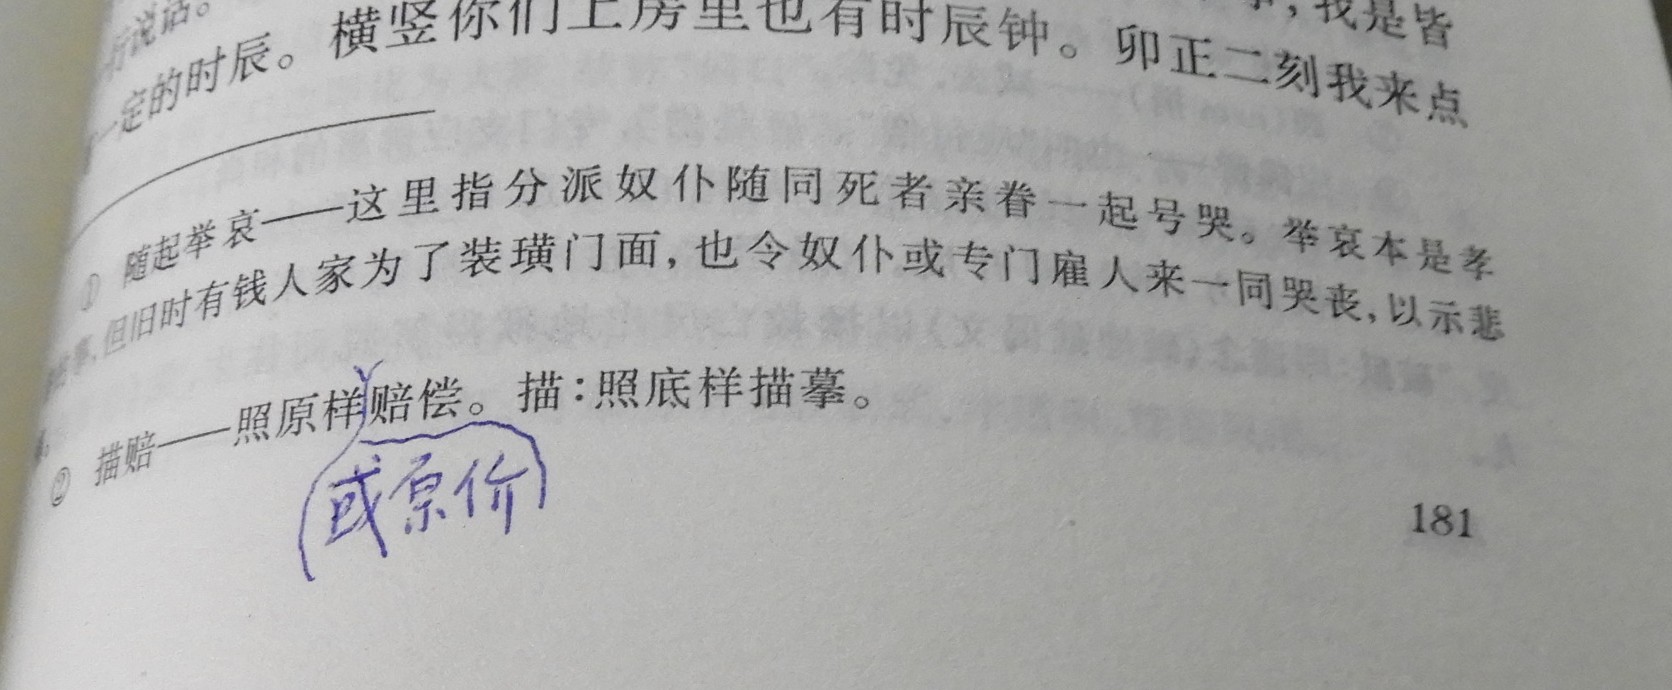 事，我是皆
行说话。
有一定的时辰。横竖你们上房里也有时辰钟。卯正二刻我来点
① 随起举哀——这里指分派奴仆随同死者亲眷一起号哭。举哀本是孝
事，但旧时有钱人家为了装璜门面，也令奴仆或专门雇人来一同哭丧，以示悲
② 描赔——照原样赔偿。描：照底样描摹。
或原价
181